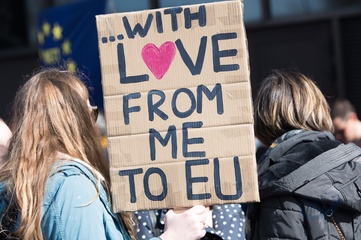 ...WITH
LOVE
FROM
ME
TO EU